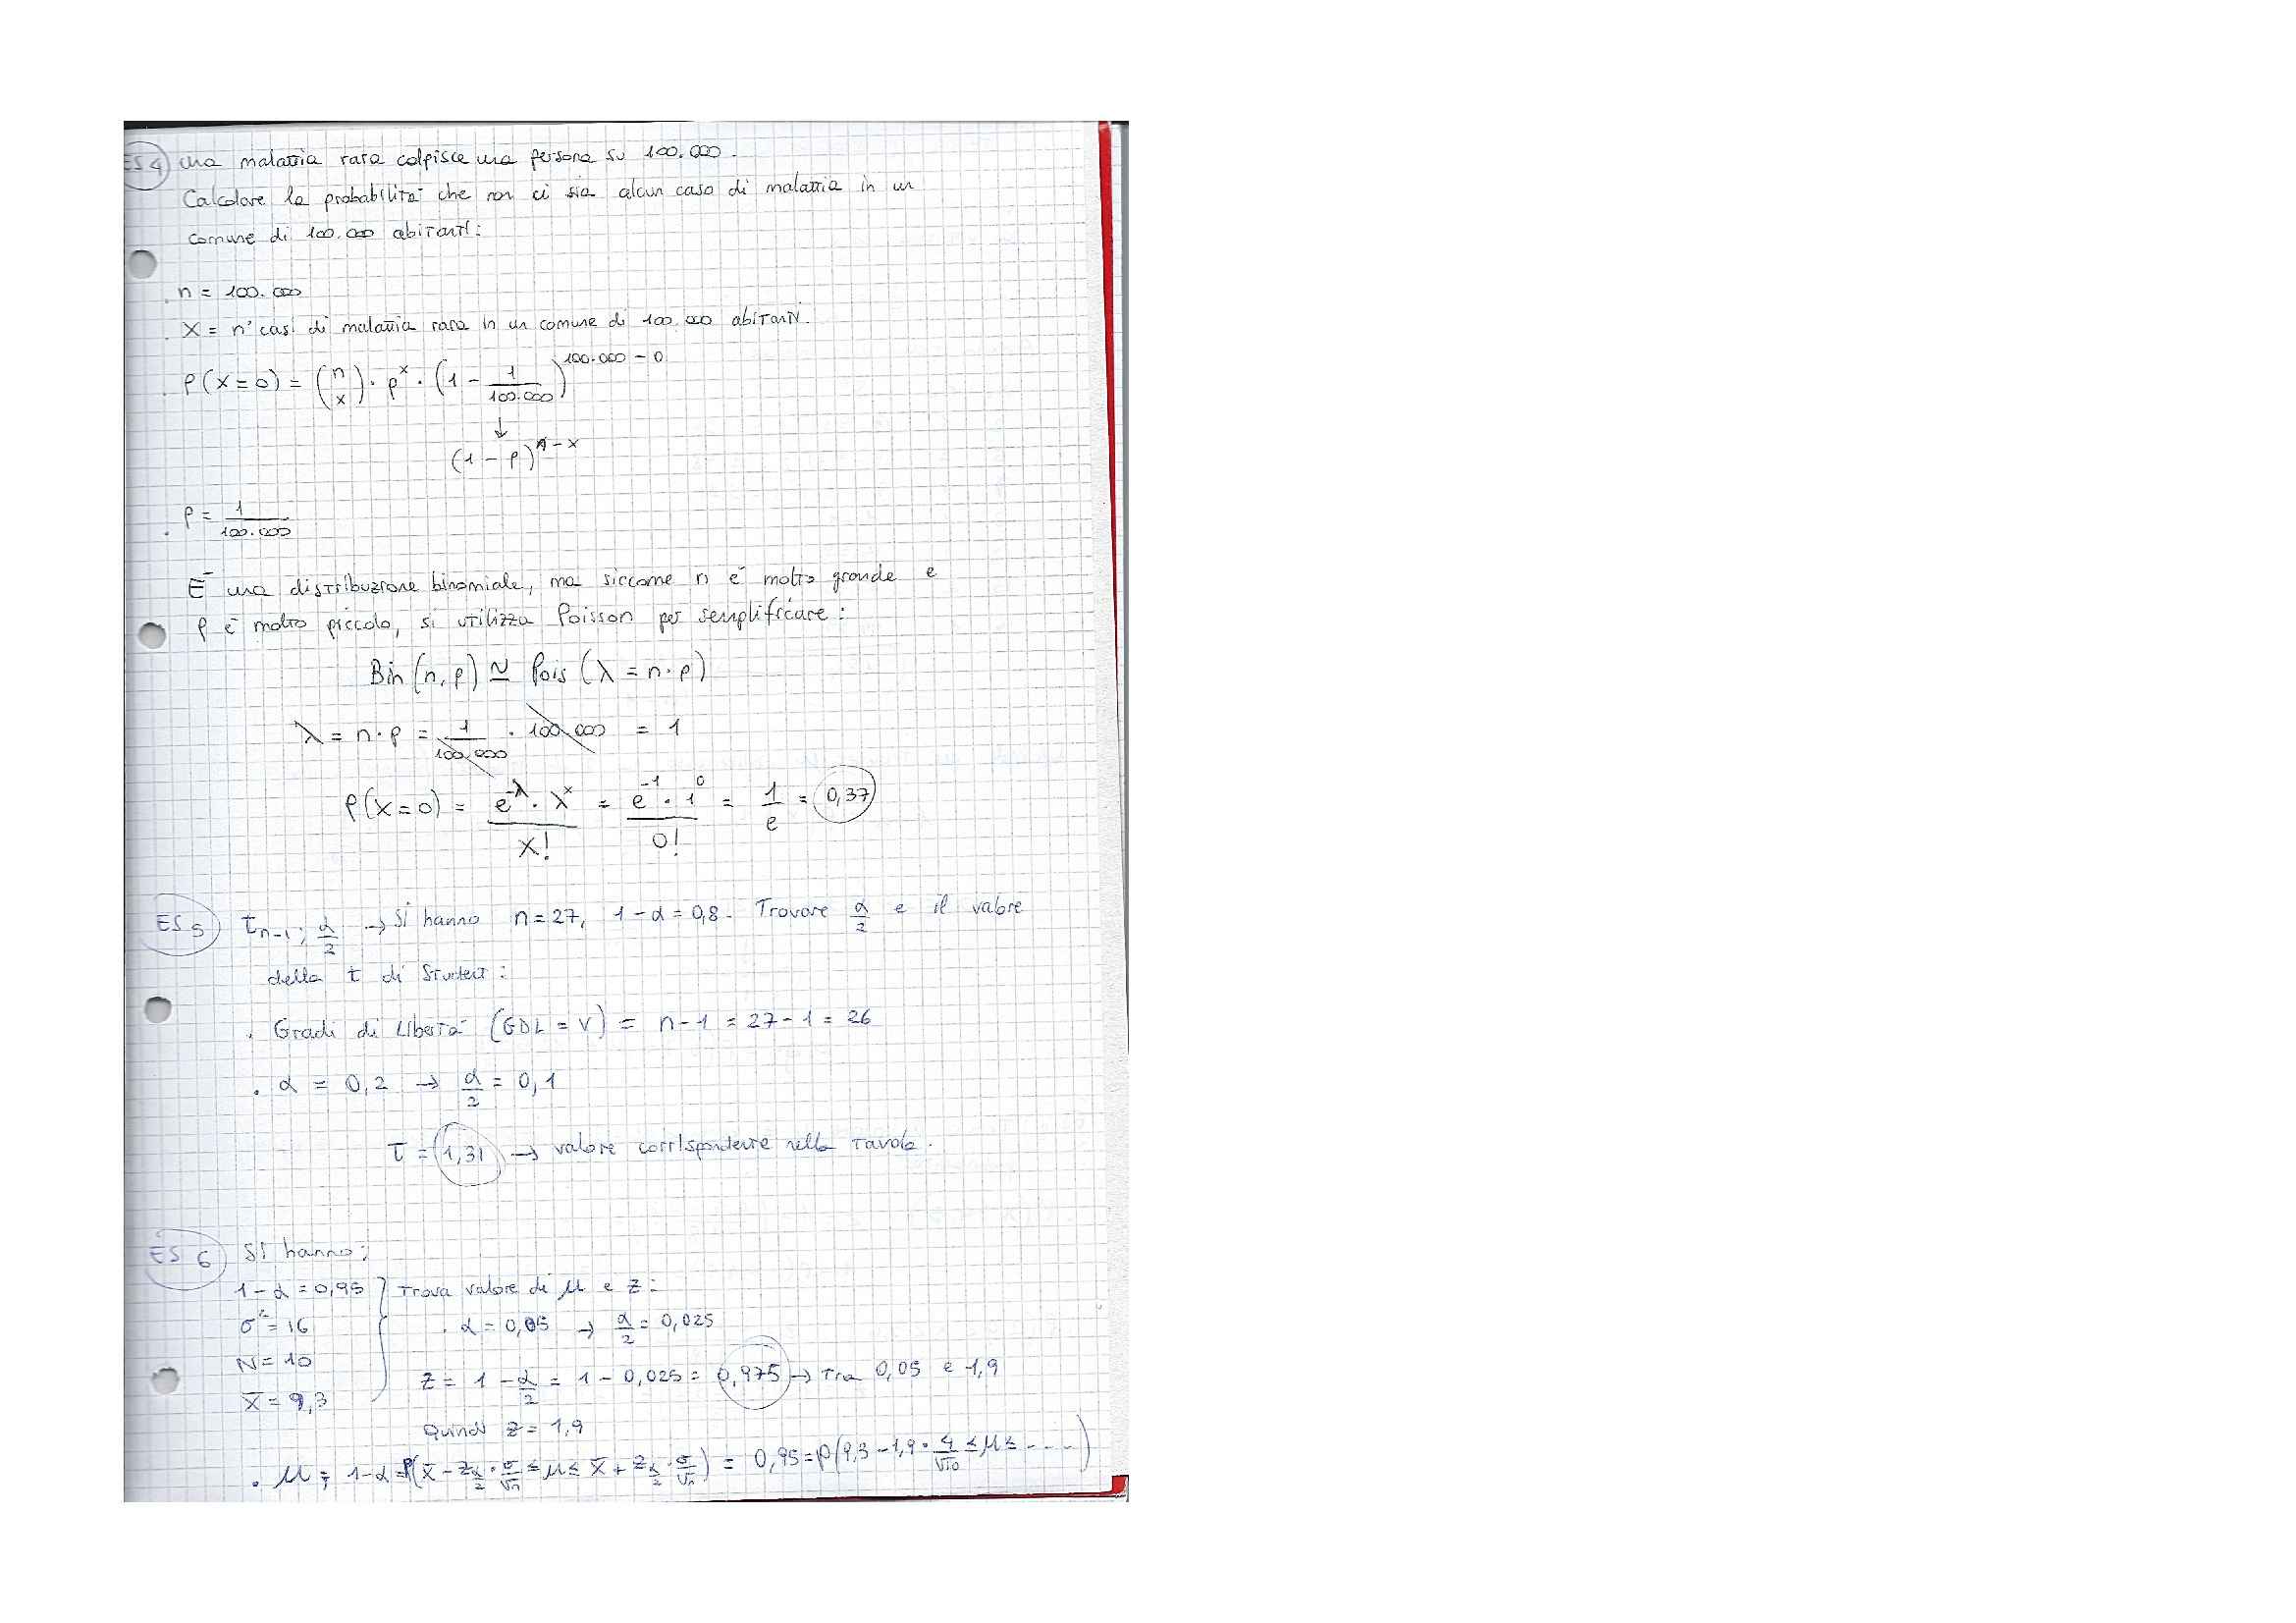 ES 4 Una malattia rara colpisce una persona su 100.000.
Calcolare la probabilità che non ci sia alcun caso di malattia in un
comune di 100.000 abitanti:
. n = 100.000
. X = n° casi di malattia rara in un comune di 100.000 abitanti.
. P(X=0) = (n x) · p^x · (1 - 1/100.000)^(100.000 - 0)
↓
(1 - p)^(n-x)
. p = 1/100.000
È una distribuzione binomiale, ma siccome n è molto grande e
p è molto piccolo, si utilizza Poisson per semplificare:
Bin (n, p) ≃ Pois (λ = n·p)
λ = n·p = 1/100.000 · 100.000 = 1
P(X=0) = e^-λ · λ^x / x! = e^-1 · 1^0 / 0! = 1/e = 0,37
ES 5 t n-1; α/2 → Si hanno n = 27, 1-α = 0,8. Trovare α/2 e il valore
della t di Student:
. Gradi di libertà (GDL = V) = n-1 = 27-1 = 26
. α = 0,2 → α/2 = 0,1
t = 1,31 → valore corrispondente nella tavola.
ES 6 Si hanno:
1-α = 0,95 } Trova valore di μ e z:
σ² = 16 . α = 0,05 → α/2 = 0,025
N = 10
z = 1 - α/2 = 1 - 0,025 = 0,975 → Tra 0,05 e 1,9
x̄ = 9,3
Quindi z = 1,9
. μ; 1-α = P(x̄ - z α/2 · σ/√n ≤ μ ≤ x̄ + z α/2 · σ/√n) = 0,95 = P(9,3 - 1,9 · 4/√10 ≤ μ ≤ ----)